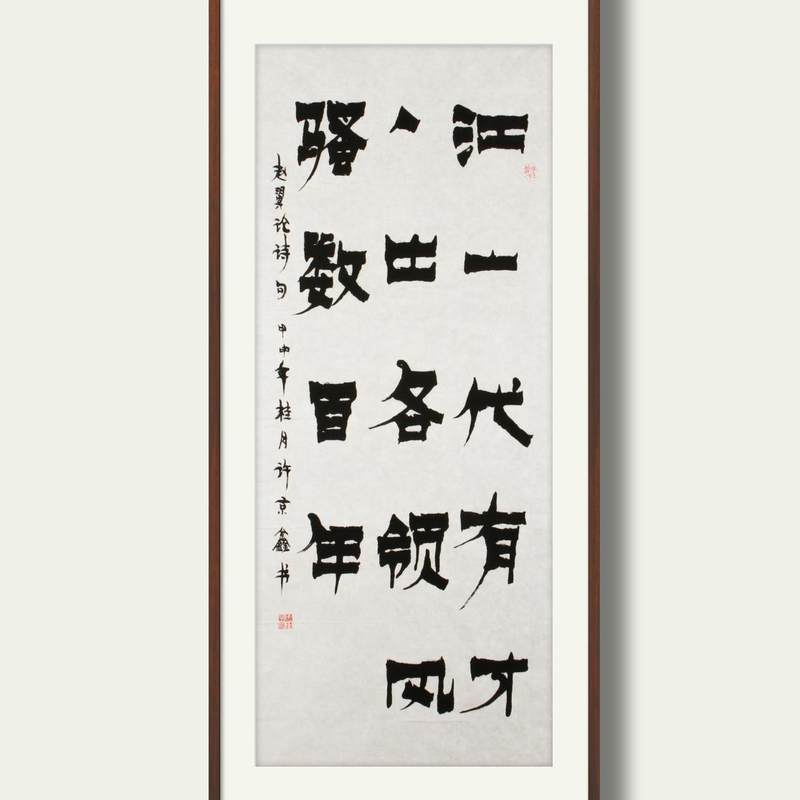 江山代有才
人出各领风
骚数百年
赵翼论诗句 甲申年桂月许京鑫书